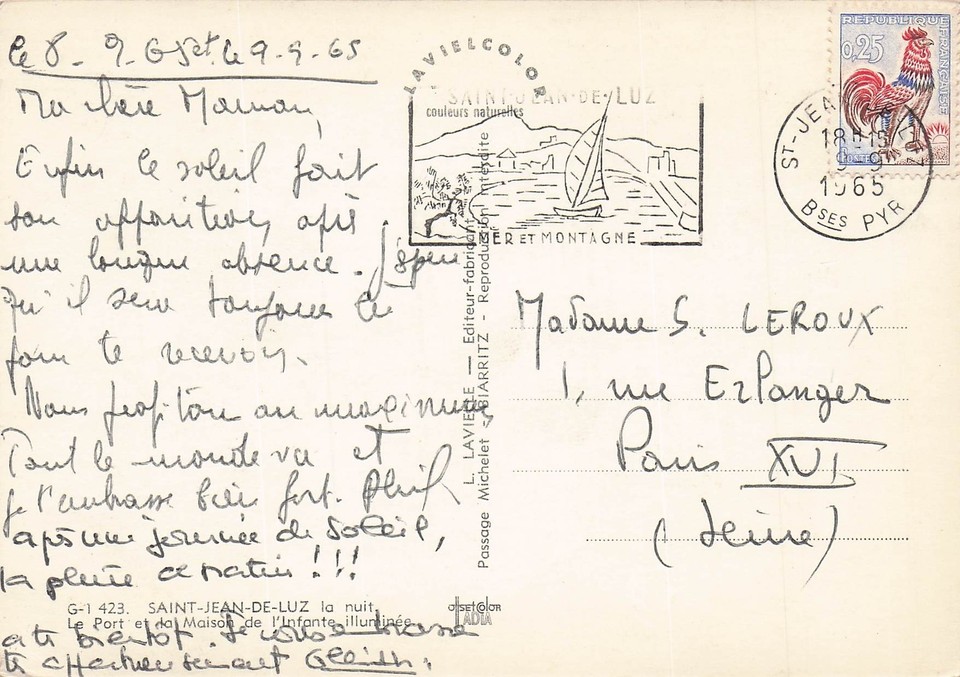 le 8-9-65 et le 9-9-65
Ma chère Maman,
Enfin le soleil fait
son apparition après
une longue absence. J'espère
qu'il sera toujours là
pour te recevoir.
Nous profitons au maximum
Tout le monde va et
je t'embrasse bien fort.
après une journée de soleil,
la pluie ce matin !!!
a très bientôt. Je vous embrasse
très affectueusement
G-1 423. SAINT-JEAN-DE-LUZ la nuit
Le Port et la Maison de l'Infante illuminée
LAVIELCOLOR
couleurs naturelles
SAINT-JEAN-DE-LUZ
MER ET MONTAGNE
L. LAVIELLE — Editeur-fabricant
Passage Michelet - BIARRITZ - Reproduction interdite
OFFSETCOLOR
IADIA
REPUBLIQUE FRANÇAISE
0,25
POSTES
ST-JEAN-DE-LUZ
18H15
9-9
1965
BSES PYR
Madame S. LEROUX
1, rue Erlanger
Paris XVI
(Seine)